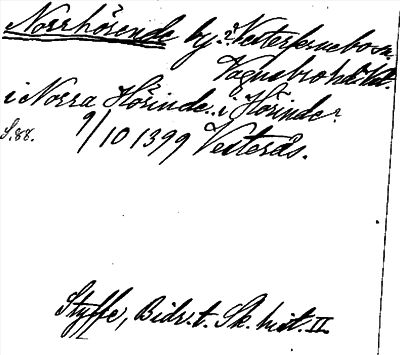 Norrhörende by? Vesterfernebo sn.
Vagnsbro härad.
i Norra Hörinde.. i Hörinde?
S.88. 9/10 1399 Vesterås.
Styffe, Bidr. t. Sk. hist. II